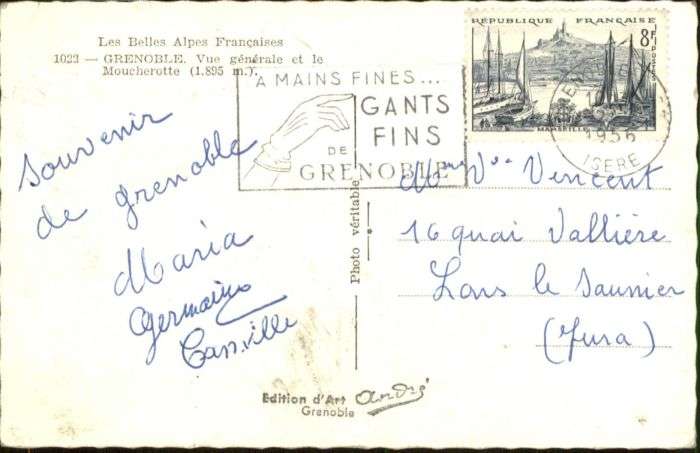 Les Belles Alpes Françaises
1023 — GRENOBLE. Vue générale et le
Moucherotte (1.895 m.).
A MAINS FINES...
GANTS
FINS
DE
GRENOBLE
RÉPUBLIQUE FRANÇAISE
8F
POSTES
MARSEILLE
1956
ISERE
Souvenir
de grenoble
Maria
Germaine
Mme Vve Vincent
16 quai Vallière
Lons le Saunier
(Jura)
Photo véritable
Edition d'Art André
Grenoble